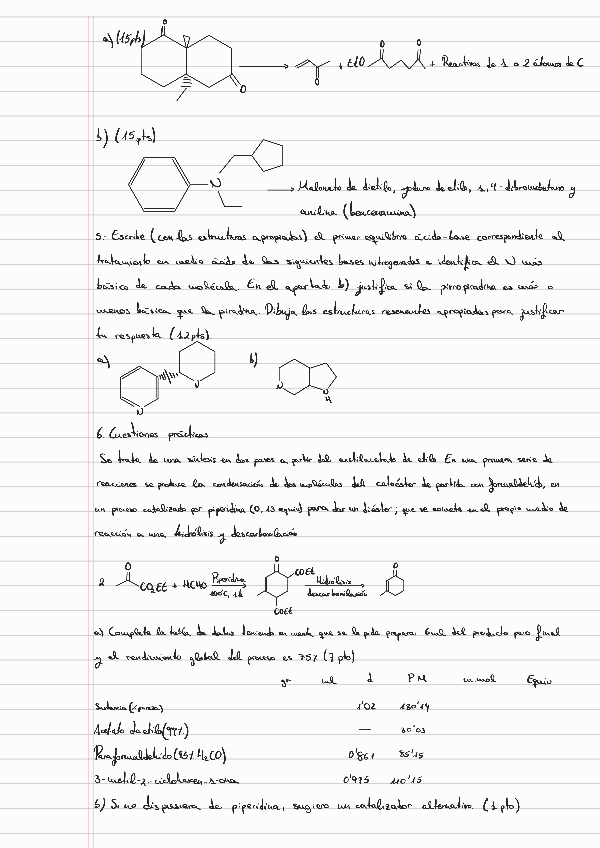 a) (15pts) + EtO + Reactivos de 1 o 2 átomos de C
b) (15 pts)
Malonato de dietilo, yoduro de etilo, 1,4-dibromobutano y
anilina (bencenamina)
5.- Escribe (con las estructuras apropiadas) el primer equilibrio ácido-base correspondiente al
tratamiento en medio ácido de las siguientes bases nitrogenadas e identifica el N más
básico de cada molécula. En el apartado b) justifica si la pirropiridina es más o
menos básica que la piridina. Dibuja las estructuras resonantes apropiadas para justificar
tu respuesta (12pts)
a) b)
6. Cuestiones prácticas
Se trata de una síntesis en dos pasos a partir del acetilacetato de etilo. En una primera serie de
reacciones se produce la condensación de dos moléculas del cetoéster de partida con formaldehído, en
un proceso catalizado por piperidina (0,13 equiv) para dar un diéster; que se somete en el propio medio de
reacción a una hidrólisis y descarboxilación
2 CO2Et + HCHO Piperidina 100°C, 1d COEt COEt Hidrólisis descarboxilación
a) Complete la tabla de datos teniendo en cuenta que se le pide preparar 6ml del producto puro final
y el rendimiento global del proceso es 75% (7 pto)
gr ml d PM m.mol Equiv
Sustancia (riqueza) 1'02 130'14
Acetato de etilo (99%) — 30'03
Paraformaldehído (95% H2CO) 0'861 85'15
3-metil-2-ciclohexen-1-ona 0'975 110'15
b) Si no dispusiera de piperidina, sugiero un catalizador alternativo. (1 pto)